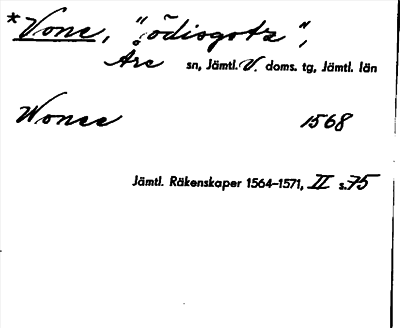 *Vone, "ödisgotz",
Åre sn, Jämtl. V. doms. tg, Jämtl. län
Wonee 1568
Jämtl. Räkenskaper 1564-1571, II s. 75